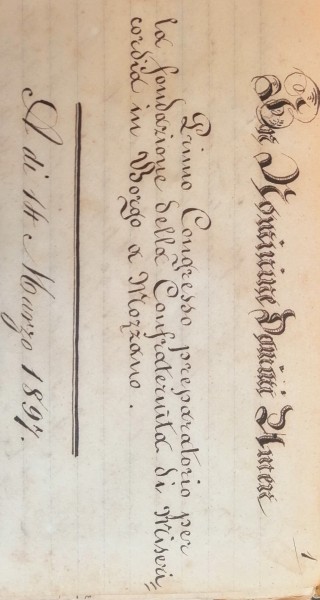 1
In Nomine Domini Amen
Primo Congresso preparatorio per
la fondazione della Confraternita di Miseri=
cordia in Borgo a Mozzano.
A dì 14 Marzo 1897.